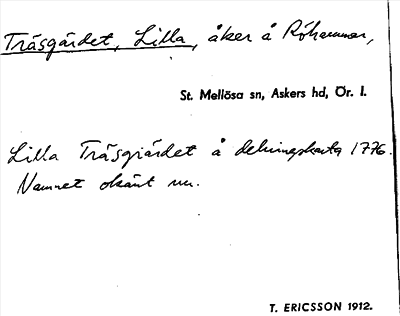 Träsgärdet, Lilla, åker å Röhammar,
St. Mellösa sn, Askers hd, Ör. l.
Lilla Träsgiärdet å delningskarta 1776.
Namnet okänt nu.
T. ERICSSON 1912.